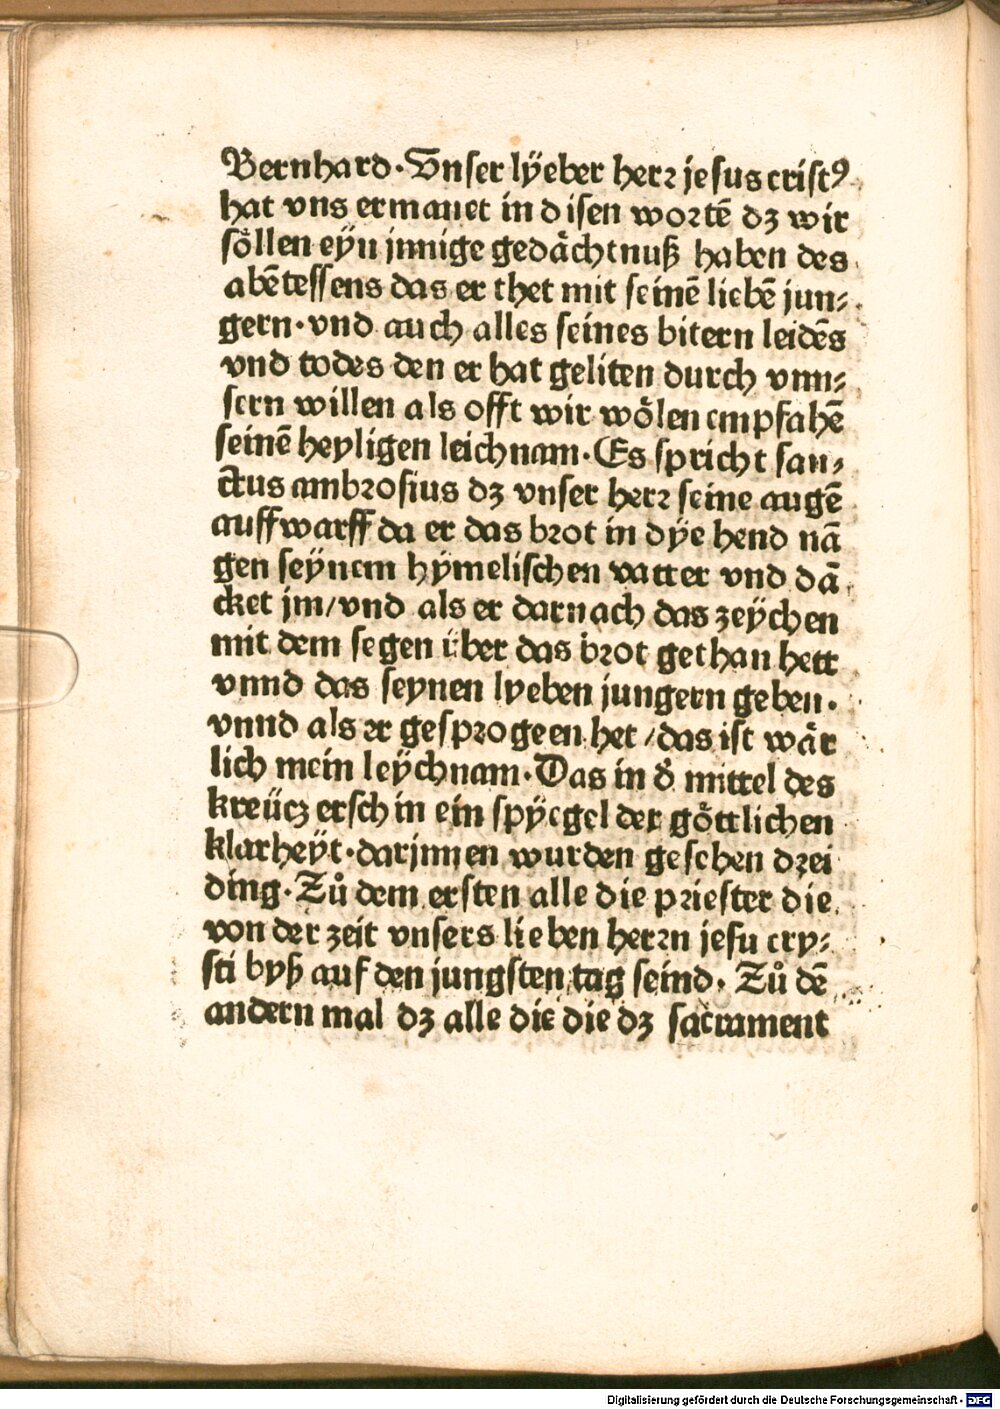 Bernhard·Vnser lÿeber herꝛ jesus cristꝰ
hat vns ermanet in disen woꝛtē dʒ wir
sŏllen eÿn jnnige gedåchtnuß haben des
abētessens das er thet mit seinē liebē jun⸗
gern·vnd auch alles seines bitern leidēs
vnd todes den er hat geliten durch vnn⸗
sern willen als offt wir wŏlen empfahē
seinē heyligen leichnam·Es spricht san⸗
ctus ambꝛosius dʒ vnser herꝛ seine augē
auffwarff da er das bꝛot in dÿe hend nā
gen seÿnem hÿmelischen vatter vnd dā
cket jm/vnd als er darnach das zeÿchen
mit dem segen über das bꝛot gethan hett
vnnd das seynen lyeben jungern geben·
vnnd als er gespꝛogeen het/das ist wår
lich mein leÿchnam·Das in d̕ mittel des
kreücz erschin ein spÿegel der gŏttlichen
klarheÿt·darjnnen wurden gesehen dꝛei
ding·Zů dem ersten alle die pꝛiester die
von der zeit vnsers lieben herꝛn jesu cry⸗
sti byß auf den jungsten tag seind· Zů dē
andern mal dʒ alle die die dʒ sacrament
Digitalisierung gefördert durch die Deutsche Forschungsgemeinschaft - DFG